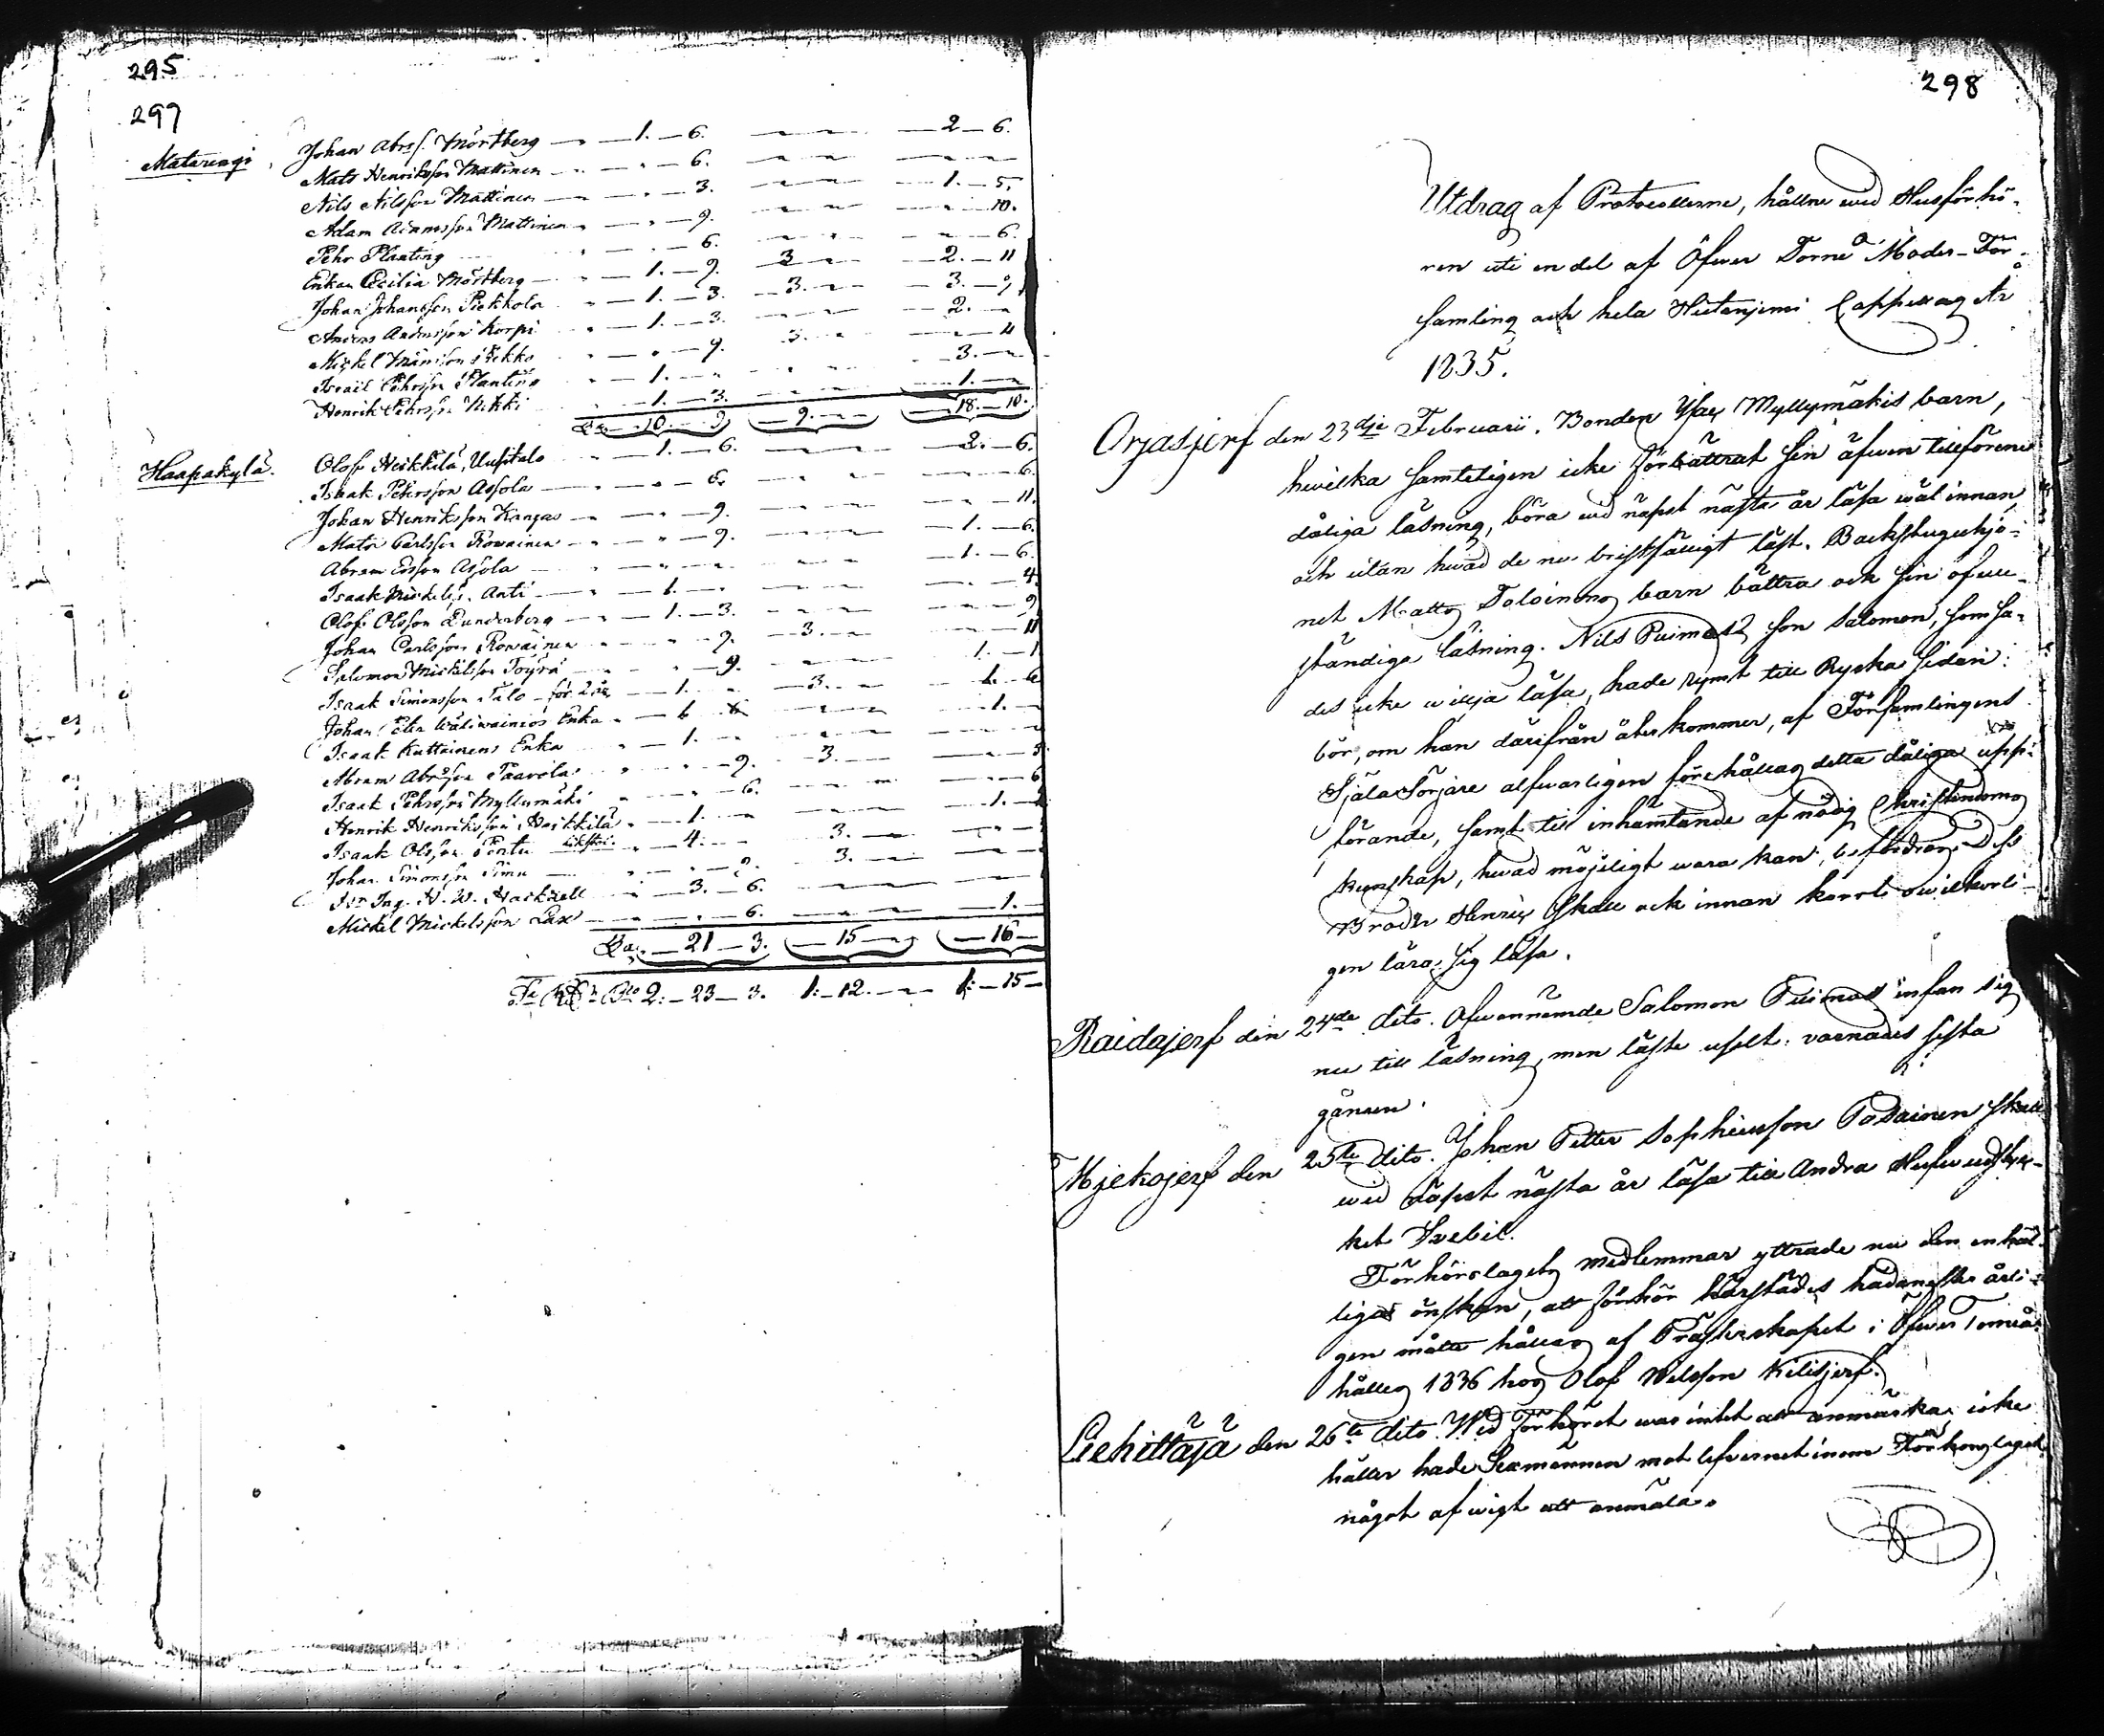 295
297
Matarengi Johan Abrss. Mörtberg 1.—6. 2—6.
Mats Henriksson Mattinen 6.
Nils Nilsson Mattinen 3. 1.—5.
Adam Adamsson Mattinen 9. 10.
Pehr Planting 6. 6.
Enkan Cecilia Mörtberg 1.—9. 3 2.—11
Johan Johansson Piekkola 1.—3. 3. 3.—9
Anders Andersson Korpi 1.—3. 2.
Mickel Månsson Wekko 9. 3. 4
Israel Pehrsson Planting 1. 3.
Henrik Pehrsson Nikki 1.—3. 1.
10—9 9. 18.—10.
Haapakylä. Olof Heikkilä, Uusitalo 1.—6. 2.—6.
Isaak Pehrsson Assola 6. 6.
Johan Henriksson Kangas 9. 11.
Mats Carlsson Rowainen 9. 1.—6.
Abram Ersson Assola 1.—6.
Isaak Mickelss. Anti 1. 4.
Olof Olsson Lunderberg 1.—3. 9
Johan Carlsson Rowainen 9. 3. 11
Salomon Mickelsson Töyrä 9. 1.—1
Isaak Simonsson Talo för 2 år 1. 3. 1.—6
Johan Petter Wäliwainios Enka 1.
Isaak Kuttainens Enka 1.
Abram Abrsson Paavola 9. 3. 3
Isaak Pehrsson Myllymäki 6. 6
Henrik Henriksson Heikkilä 1. 1.
Isaak Olsson Perttu 4. 3.
Johan Simonsson Simu 9. 3.
Ing. N. W. 3.—6.
Mickel Mickelsson Lax 6. 1.
21—3. 15 16
2.—23—3. 1.—12. 1.—15
298
Utdrag af Protocollerne, hållne wid Husförhö-
ren uti en del af Öfwer Torneå Moder-För-
samling och hela Hietaniemi Cappellag År
1835.
Orjasjerf den 23dje Februarii. Bonden Isac Myllymäkis barn,
hwilka samteligen icke förbättrat sin äfwen tillförene
dåliga läsning, böra wid näpst nästa år läsa wäl innan
och utan hwad de nu bristfälligt läst. Backstuguhjo-
net Matts Toloinens barn bättra ock sin ofull-
ständiga läsning. Nils Puimas son Salomon, som sa-
des icke wilja läsa, hade rymt till Ryska sidan:
bör, om han därifrån återkommer, af Församlingens
Själasörjare alfwarligen förehållas detta dåliga upp-
förande, samt till inhämtande af nödig Christendoms
kunskap, hwad möjeligt wara kan, befordras. Dess
Broder Henric skall ock innan kort owilkorli-
gen lära sig läsa.
Raidajerf den 24de dito. Ofwannämde Salomon Puimas infan sig
nu till läsning, men läste uselt: varnades sista
gången.
Mjekojerf den 25te dito. Johan Petter Sophiasson Pasainen skall
wid näpst nästa år läsa till Andra Hufwudstyc-
ket Svebil.
Förhörslagets medlemmar yttrade nu den enhäl-
liga önskan, att förhör härstädes hädanefter årli-
gen måtte hållas af Prästerskapet i Öfwer Torneå:
hålles 1836 hos Olof Nilsson Kilisjerf.
Liehittäjä den 26te dito. Wid förhöret war intet att anmärka; icke
häller hade Sexmännen mot lefwernet inom Förhörslaget
något af wigt att anmäla.